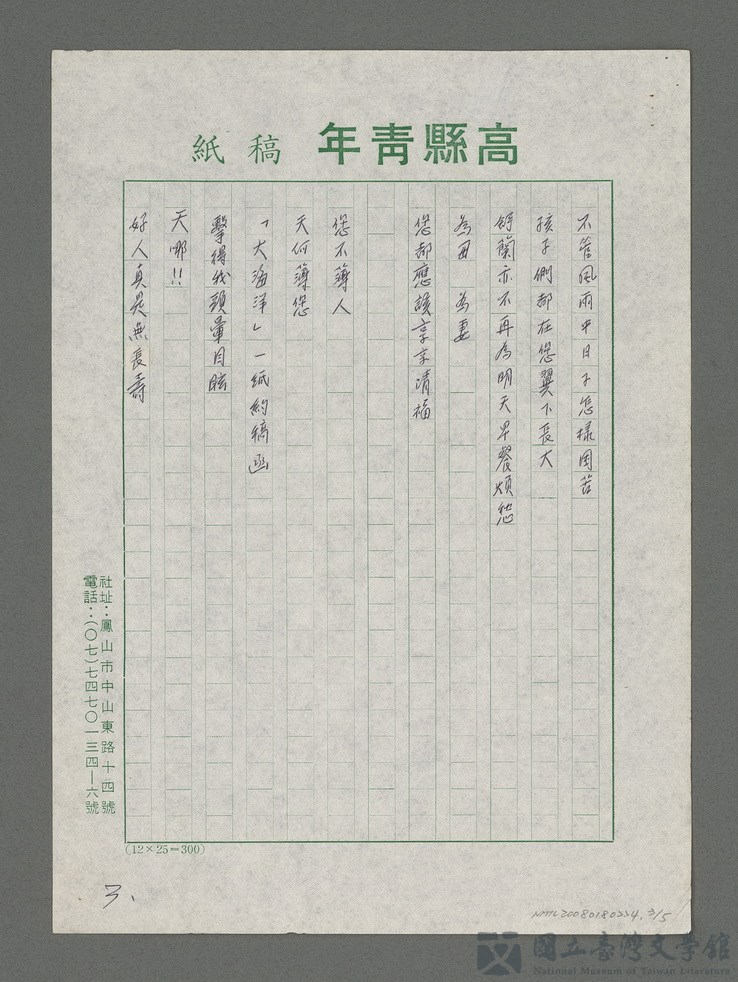 高縣青年 稿紙
不管風雨中日子怎樣困苦
孩子們都在您翼下長大
舒蘭亦不再為明天早餐煩愁
為母 為妻
您都應該享享清福
您不薄人
天何薄您
「大海洋」一紙約稿函
擊得我頭暈目眩
天哪!!
好人真是無長壽
社址：鳳山市中山東路十四號
電話：(〇七)七四七〇一三四—六號
(12×25=300)
3、
NMTL20080180334. 3/5
國立臺灣文學館
National Museum of Taiwan Literature